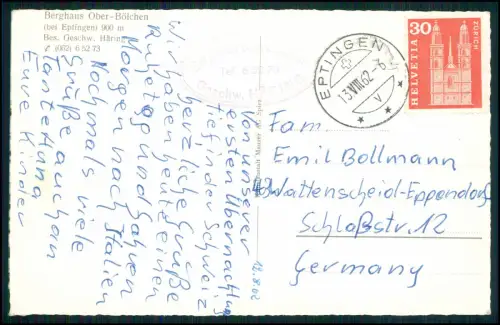 Berghaus Ober-Bölchen
(bei Eptingen) 900 m
Bes. Geschw. Häring
(062) 6 52 73
Von unserer
ersten Übernachtung
tief in der Schweiz
herzliche Grüße
Wir haben heute einen
Ruhetag und fahren
Morgen nach Italien
Nochmals viele
Grüße auch an
Tante Anna
Eure Kinder
12.8.62
EPTINGEN
13.VIII.62-6
V
30
ZÜRICH
HELVETIA
Fam.
Emil Bollmann
43 Wattenscheid-Eppendorf
Schloßstr. 12
Germany